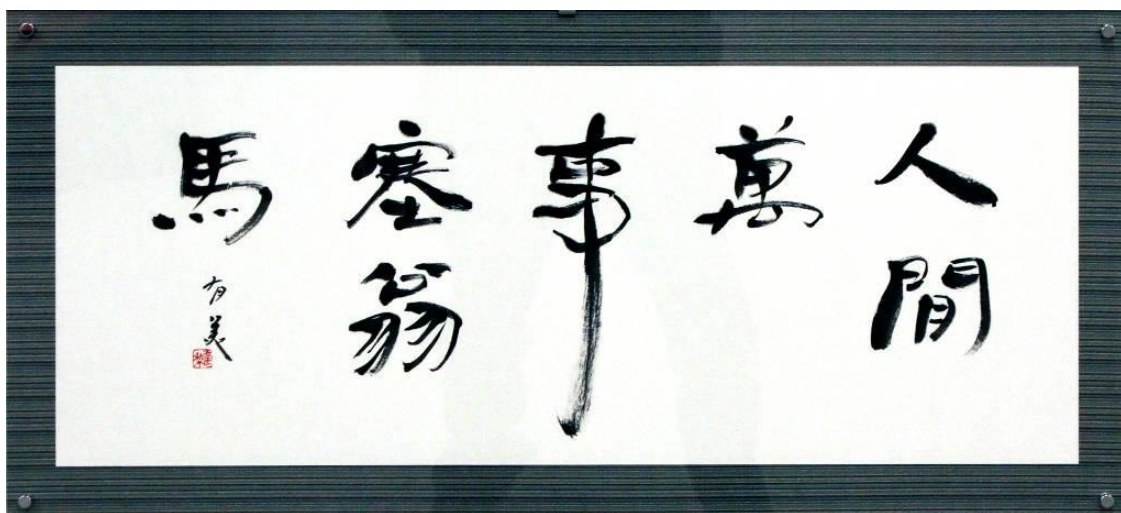 人間
萬
事
塞翁
馬
有美